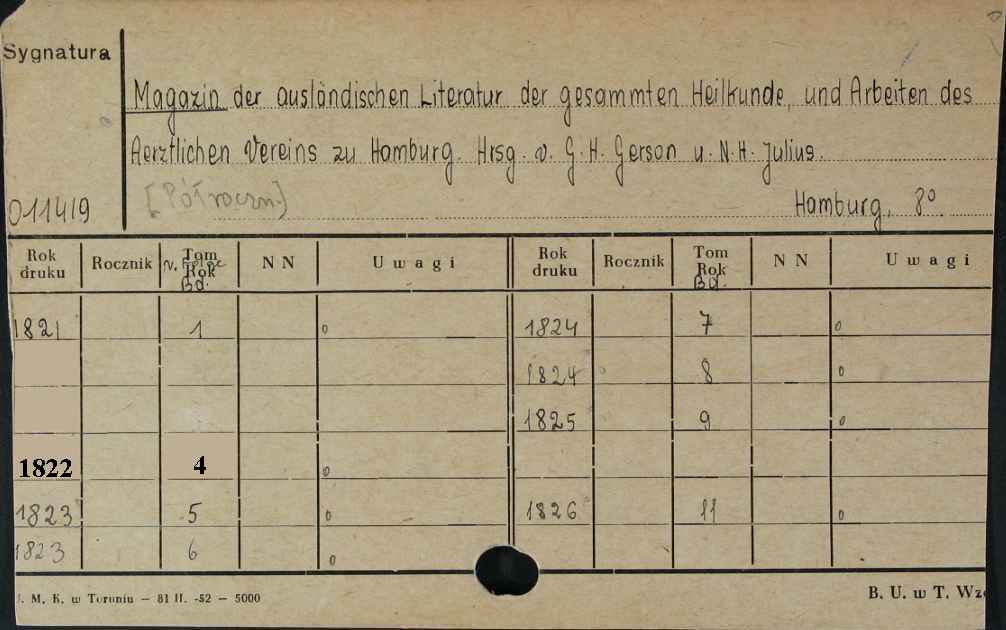 Sygnatura
Magazin der ausländischen Literatur der gesammten Heilkunde, und Arbeiten des
Aerztlichen Vereins zu Hamburg. Hrsg. v. G. H. Gerson u. N. H. Julius.
011419 [Półroczn.] Hamburg, 8°.
Rok druku Rocznik Tom Rok Bd. NN Uwagi Rok druku Rocznik Tom Rok Bd. NN Uwagi
1821 1 o 1824 7 o
1824 8 o
1825 9 o
1822 4 o
1823 5 o 1826 11 o
1823 6 o
M. K. w Toruniu — 81 II. -52 — 5000 B. U. w T.